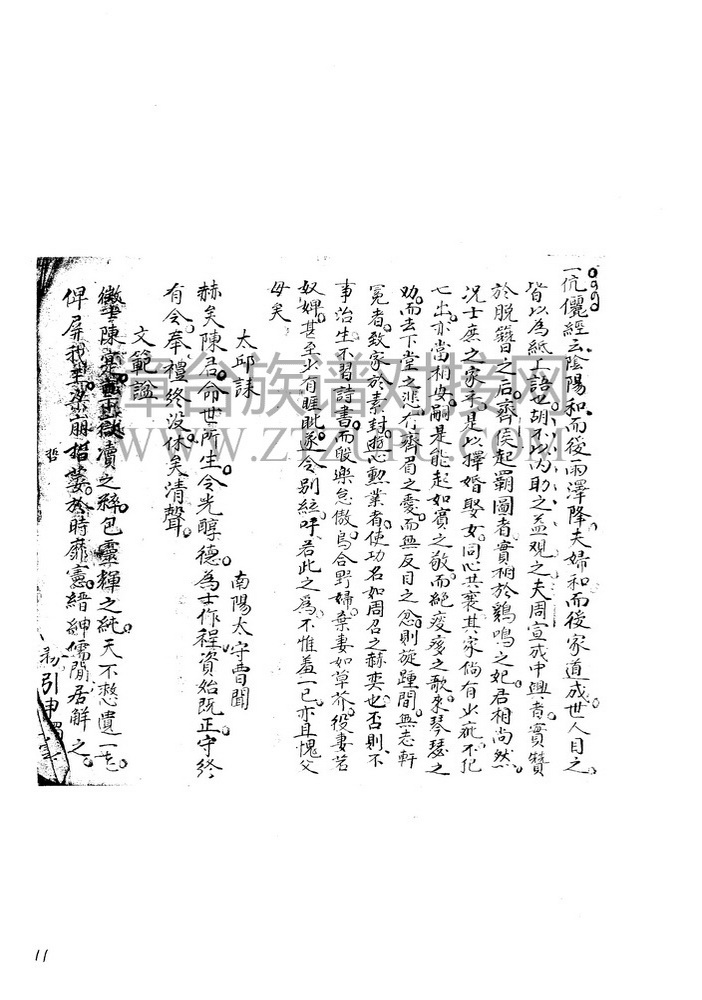 一伉儷經云陰陽和而後雨澤降夫婦和而後家道成世人目之
皆以為紙上語也胡不以內助之益觀之夫周宣成中興者實贊
於脫簪之后齊侯起霸圖者實相於鷄鳴之妃君相尚然
況士庶之家乎是以擇婚娶女同心共襄其家倘有出疵不犯
七出亦當相安嗣是能起如賓之敬而絕疲痿之歌來琴瑟之
劝而去下堂之悲有齊眉之愛而無反目之忿則旋踵間無志軒
冕者致家於素封遊心動業者使功名如周召之赫奕也否則不
事治生不習詩書而般樂怠傲烏合野婦棄妻如草芥役妻若
奴婢甚至少有睚眦遂令別絃吁若此之為不惟羞一已亦且愧父
母矣
太邱誄
南陽太守曹聞
赫矣陳君命世所生令光醇德為士作程資始既正守終
有令奉禮終没休矣清聲
文範謚
徽士陳寔嶽瀆之縣包靈輝之純天不憗遺一老
俾屏我梁崩哲萎於時靡憲縉紳儒閒居解之
哲
引申
阜台族谱对接网
WWW.ZTZUPU.COM
11